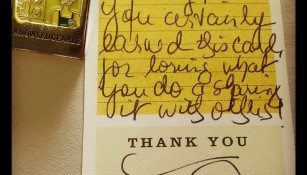 KNOWLEDGEABLE
You certainly
earned this card,
for loving what
you do & sharing
it with others!
THANK YOU